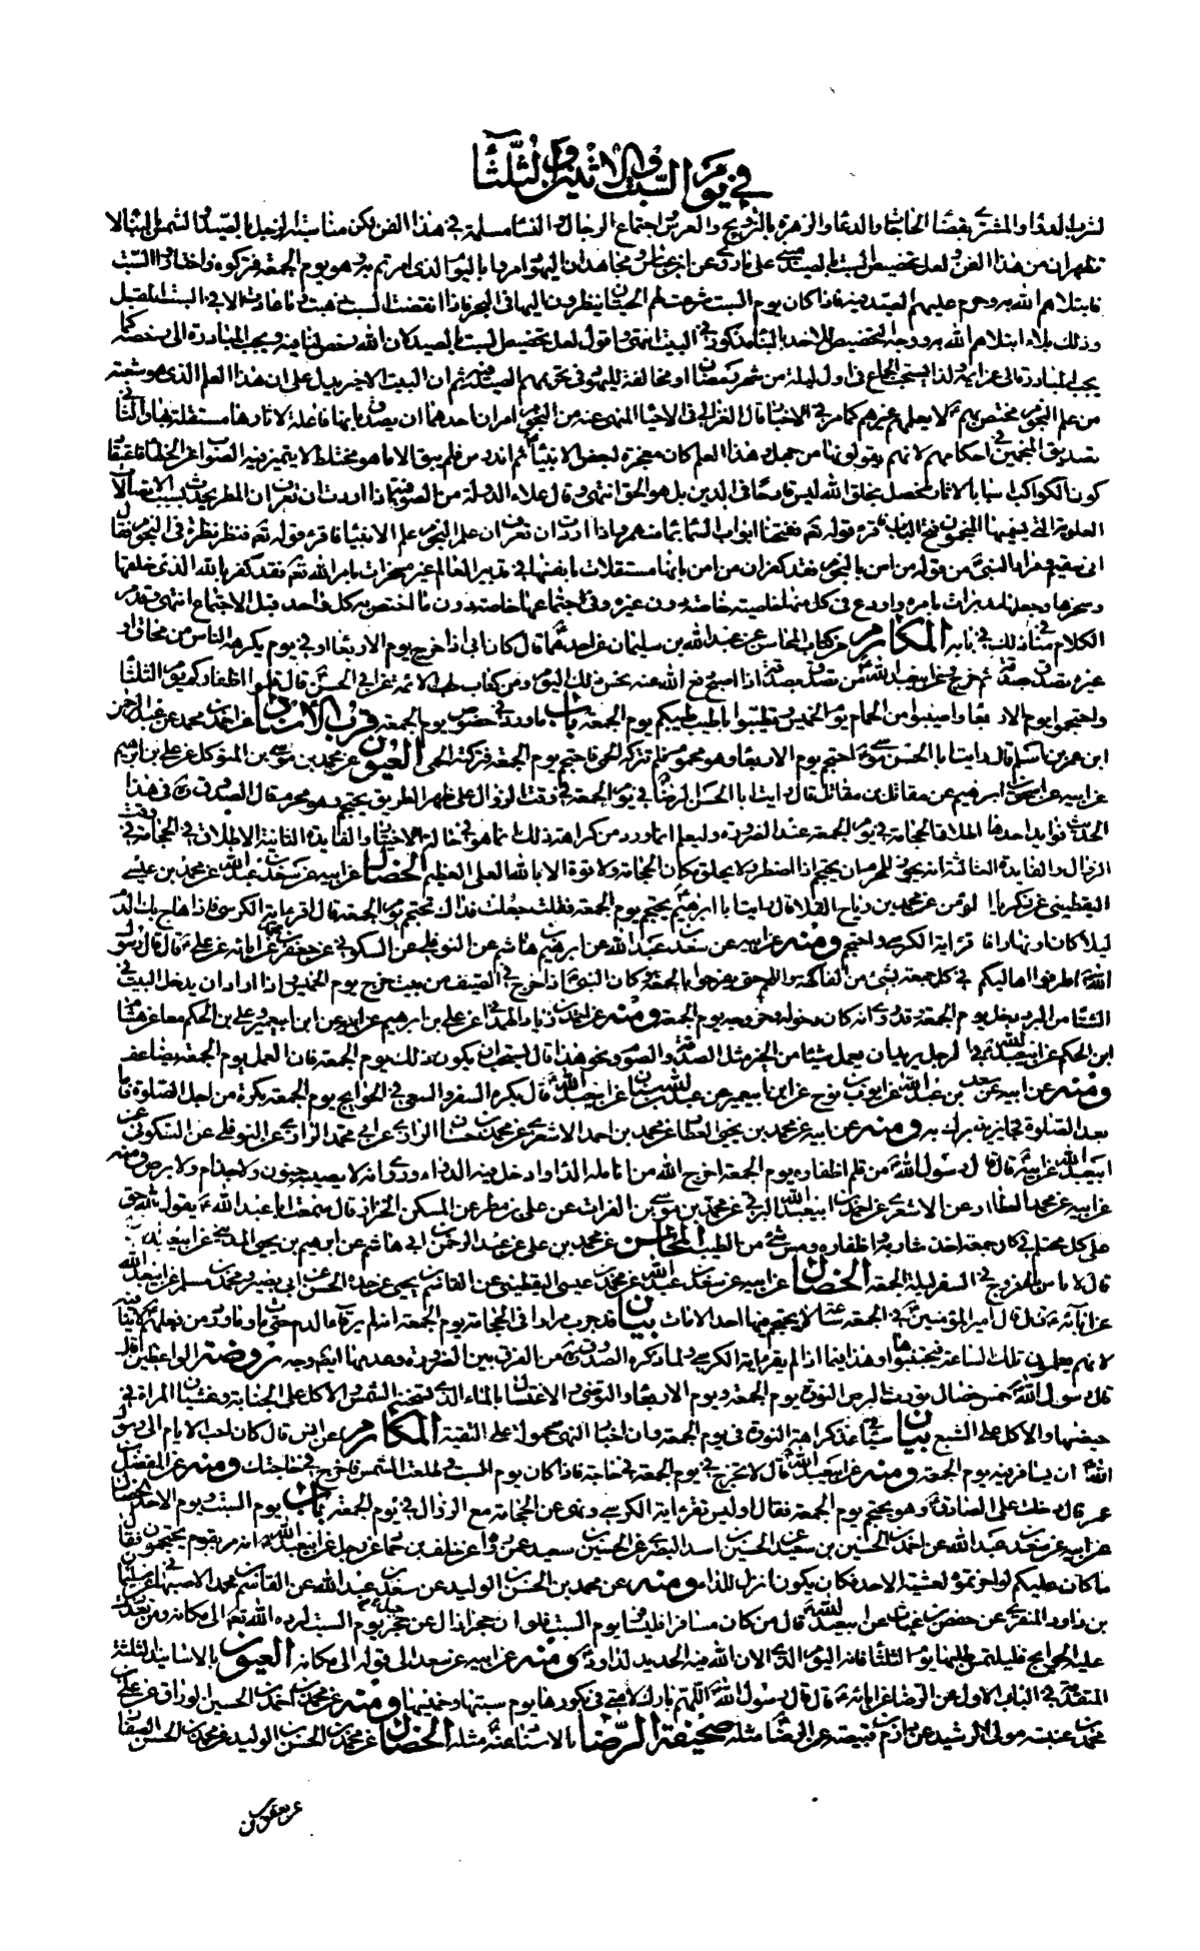 في يوم السبت والاثنين والثلثا
لشرب الدواء والمشتري بقضاء الحاجات والدعاء والزهرة بالتزويج والعرس اجتماع الرجال والنساء مسلمة في هذا الفن لكن مناسبة زحل بالصيد والشمس بالبناء لا
تظهران من هذا الفن ولعل تخصيص السبت بالصيد على ما روي عن ابن عباس ومجاهد ان اليهود امروا باليوم الذي امرتم به وهو يوم الجمعة فتركوه واختاروا السبت
فابتلاهم الله به وحرم عليهم الصيد فيه فاذا كان يوم السبت شرعت لهم الحيتان ينظرون اليها في البحر فاذا انقضت السبت ذهبت فما عادت الا في السبت المقبل
وذلك بلاء ابتلاهم الله به ووجه التخصيص للاحد بالبناء مذكور في البيت انتهى واقول لعل تخصيص السبت بالصيد كان الله رخص لنا فيه ويجب المبادرة الى رخصه كما
يجب المبادرة الى عزايمه ولذا يستحب الجماع في اول ليلة من شهر رمضان او مخالفة لليهود في تحريمهم الصيد فيه ثم ان البيت الاخير يدل على ان هذا العلم الذي هو شعبة
من علم النجوم مختص بهم لا يعلمه غيرهم كما مر في الاخبار قال الغزالي في الاحياء المنهي عنه من النجوم امران احدهما ان يصدق بانها فاعلة لاثارها مستقلة بها والثاني
تصديق المنجمين في احكامهم لانهم يقولونها من جهل وهذا العلم كان معجزة لبعض الانبياء ثم اندرس فلم يبق الا ما هو مختلط لا يتميز فيه الصواب عن الخطا فاعتقاد
كون الكواكب اسبابا لاثار تحصل بخلق الله ليس قادحا في الدين بل هو الحق انتهى وقال علاء الدولة من الصوفية فاذا اردت ان تعرف ان المطر يحدث بسبب الاتصالات
العلوية التي يسميها المنجمون فتح الباب فاقرء قوله تعالى ففتحنا ابواب السماء بماء منهمر واذا اردت ان تعرف ان علم النجوم علم الانبياء فاقرء قوله تعالى فنظر نظرة في النجوم فقال
اني سقيم ومراد النبي من قوله من امن بالنجوم فقد كفر ان من امن بانها مستقلات بانفسها في تدبير العالم غير مسخرات بامر الله تعالى فقد كفر بالله الذي خلقها
وسخرها وجعلها مدبرات بامره واودع في كل منها خاصية خاصة دون غيره وفي اجتماعها خاصة دون ما اختص به كل واحد قبل الاجتماع انتهى وقد مر
الكلام منا في ذلك في بابه المكارم من كتاب المحاسن عن عبد الله بن سليمان عن احدهما قال كان ابي اذا خرج يوم الاربعاء او في يوم يكرهه الناس من محاق او
غيره تصدق بصدقة ثم خرج وعن ابي عبد الله من تصدق بصدقة اذا اصبح دفع الله عنه نحس ذلك اليوم ومن كتاب طب الائمة عن ابي الحسن قال قلموا اظفاركم يوم الثلثا
واحتجموا يوم الاربعاء واصيبوا من الحمام يوم الخميس وتطيبوا باطيب طيبكم يوم الجمعة باب ما ورد في خصوص يوم الجمعة قرب الاسناد عن احمد بن محمد عن عبد الرحمن
ابن عمر بن اسلم قال رايت ابا الحسن موسى احتجم يوم الاربعاء وهو محموم فلم تتركه الحمى فاحتجم يوم الجمعة فتركته الحمى العيون عن محمد بن موسى بن المتوكل عن علي بن ابرهيم
عن ابيه عن اسحق بن ابراهيم عن مقاتل بن مقاتل قال رايت ابا الحسن الرضا في يوم الجمعة في وقت الزوال على ظهر الطريق يحتجم وهو محرم قال الصدوق في هذا
الحديث فوايد احدها اطلاق الحجامة في يوم الجمعة عند الضرورة وليعلم ان ما ورد من كراهة ذلك انما هو في حالة الاختيار والفايدة الثانية الاطلاق في الحجامة في وقت
الزوال والفايدة الثالثة انه يجوز للمحرم ان يحتجم اذا اضطر ولا يحلق مكان الحجامة ولا قوة الا بالله العلي العظيم الخصال عن ابيه عن سعد بن عبد الله عن محمد بن عيسى
اليقطيني عن زكريا المؤمن عن محمد بن رياح القلا قال رايت ابا ابراهيم يحتجم يوم الجمعة فقلت جعلت فداك تحتجم يوم الجمعة قال اقرء اية الكرسي فاذا هاج بك الدم
ليلا كان او نهارا فاقرء اية الكرسي واحتجم ومنه عن ابيه عن سعد بن عبد الله عن ابرهيم بن هاشم عن النوفلي عن السكوني عن جعفر بن محمد عن ابائه عن علي قال قال رسول
الله اطرفوا اهاليكم في كل جمعة بشيء من الفاكهة واللحم حتى يفرحوا بالجمعة وكان النبي اذا خرج في الصيف من بيت خرج يوم الخميس واذا اراد ان يدخل البيت في
الشتاء من البرد دخل يوم الجمعة وقد روي انه كان دخوله وخروجه يوم الجمعة ومنه عن احمد بن زياد الهمداني عن علي بن ابرهيم عن ابيه عن ابن ابي عمير وعلي بن الحكم معا عن هشام
ابن الحكم عن ابي عبد الله في الرجل يريد ان يعمل شيئا من الخير مثل الصدقة والصوم ونحو هذا قال يستحب ان يكون ذلك يوم الجمعة فان العمل يوم الجمعة يضاعف
ومنه عن ابيه عن سعد بن عبد الله عن ايوب بن نوح عن ابن ابي عمير عن عبد الله بن سنان عن ابي عبد الله قال يكره السفر والسعي في الحوايج يوم الجمعة بكرة من اجل الصلوة فاما
بعد الصلوة فجايز يتبرك به ومنه عن ابيه عن محمد بن يحيى العطار عن محمد بن احمد الاشعري عن محمد بن حسان الرازي عن ابي محمد الرازي عن النوفلي عن السكوني عن
ابي عبد الله عن ابيه قال قال رسول الله من قلم اظفاره يوم الجمعة اخرج الله من انامله الداء وادخل فيه الدواء وروي انه لا يصيبه جنون ولا جذام ولا برص ومنه
عن ابيه عن محمد العطار عن الاشعري عن احمد بن ابي عبد الله البرقي عن محمد بن موسى بن الفرات عن علي بن مطر عن السكن الخزاز قال سمعت ابا عبد الله يقول لله حق
على كل محتلم في كل جمعة اخذ شاربه واظفاره ومس شيء من الطيب المحاسن عن محمد بن علي عن عبد الرحمن بن ابي هاشم عن ابرهيم بن يحيى المديني عن ابي عبد الله
قال لا باس بالخروج في السفر ليلة الجمعة الخصال عن ابيه عن سعد بن عبد الله عن محمد بن عيسى اليقطيني عن القاسم بن يحيى عن جده الحسن عن ابي بصير ومحمد بن مسلم عن ابي عبد الله
عن ابائه قال قال امير المؤمنين في الجمعة ساعة لا يحتجم فيها احد الا مات بيان قد جرب مرارا في الحجامة يوم الجمعة انه لم يرقأ الدم حتى مات
لانهم يعلمون تلك الساعة فيجتنبوها وهذا ايضا اذا لم يقرء اية الكرسي ولما ذكره الصدوق من الفرق بين الضرورة وعدمها ايضا وجه روضة الواعظين قال
قال رسول الله خمس خصال تورث البرص النورة يوم الجمعة ويوم الاربعاء والتوضي والاغتسال بالماء الذي تسخنه الشمس والاكل على الجنابة وغشيان المراة في
حيضها والاكل على الشبع بيان سياتي عدم كراهة النورة في يوم الجمعة وان اخبار النهي محمولة على التقية المكارم عن انس قال كان احب الايام الى رسول
الله ان يسافر فيه يوم الجمعة ومنه عن ابي عبد الله قال لا تخرج في يوم الجمعة في حاجة فاذا كان يوم السبت وطلعت الشمس فاخرج في حاجتك ومنه عن المفضل بن
عمر قال دخلت على الصادق وهو يحتجم يوم الجمعة فقال اوليس تقرء اية الكرسي ونهى عن الحجامة مع الزوال في يوم الجمعة باب يوم السبت ويوم الاحد الخصال
عن ابيه عن سعد بن عبد الله عن احمد بن الحسين بن سعيد عن الحسين بن اسد البصري عن الحسين بن سعيد عمن رواه عن خلف بن حماد عن رجل عن ابي عبد الله انه مر بقوم يحتجمون فقال
ما كان عليكم لو اخرتموه لعشية الاحد فكان يكون انزل للداء ومنه عن محمد بن الحسن بن الوليد عن سعد بن عبد الله عن القاسم بن محمد الاصبهاني عن سليمان
بن داود المنقري عن حفص بن غياث عن ابي عبد الله قال من كان مسافرا فليسافر يوم السبت فلو ان حجرا زال عن جبل يوم السبت لرده الله تعالى الى مكانه ومن تعذرت
عليه الحوايج فليلتمس طلبها يوم الثلثا فانه اليوم الذي الان الله فيه الحديد لداود ومنه عن ابيه عن سعد الى قوله الى مكانه العيون بالاسانيد الثلثة
المتقدمة في الباب الاول عن الرضا عن ابائه قال قال رسول الله اللهم بارك لامتي في بكورها يوم سبتها وخميسها ومنه عن محمد بن احمد بن الحسين الوراق عن علي بن
محمد بن عنبسة مولى الرشيد عن دارم بن قبيصة عن الرضا مثله صحيفة الرضا بالاسناد عنه مثله الخصال عن محمد بن الحسن بن الوليد عن محمد بن الحسن الصفار
عن يعقوب بن